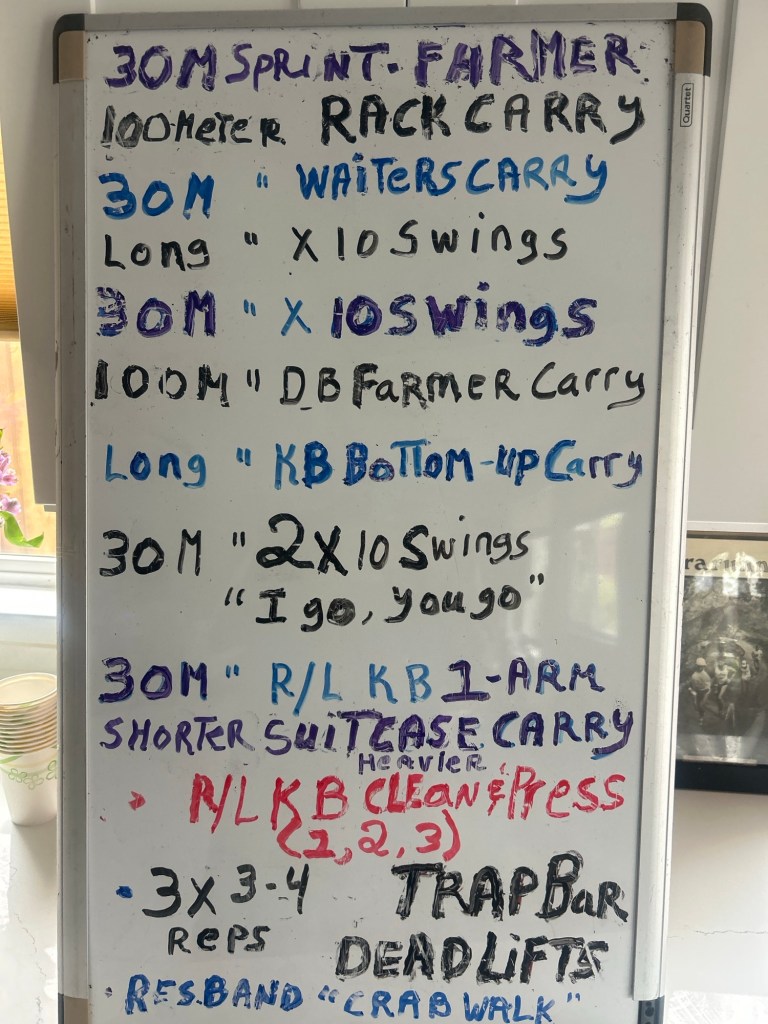 30M SPRINT. FARMER
Quartet
100 METER RACK CARRY
30M " WAITERS CARRY
Long " X 10 Swings
30M " X 10 Swings
100M " DB FARMER Carry
Long " KB BOTTOM-UP Carry
30M " 2X10 Swings
"I go, you go"
30M " R/L KB 1-ARM
SHORTER SUITCASE CARRY
HEAVIER
> R/L KB CLEAN & Press
(1, 2, 3)
• 3X 3-4 TRAP BAR
REPS DEADLIFTS
• RES. BAND "CRAB WALK"